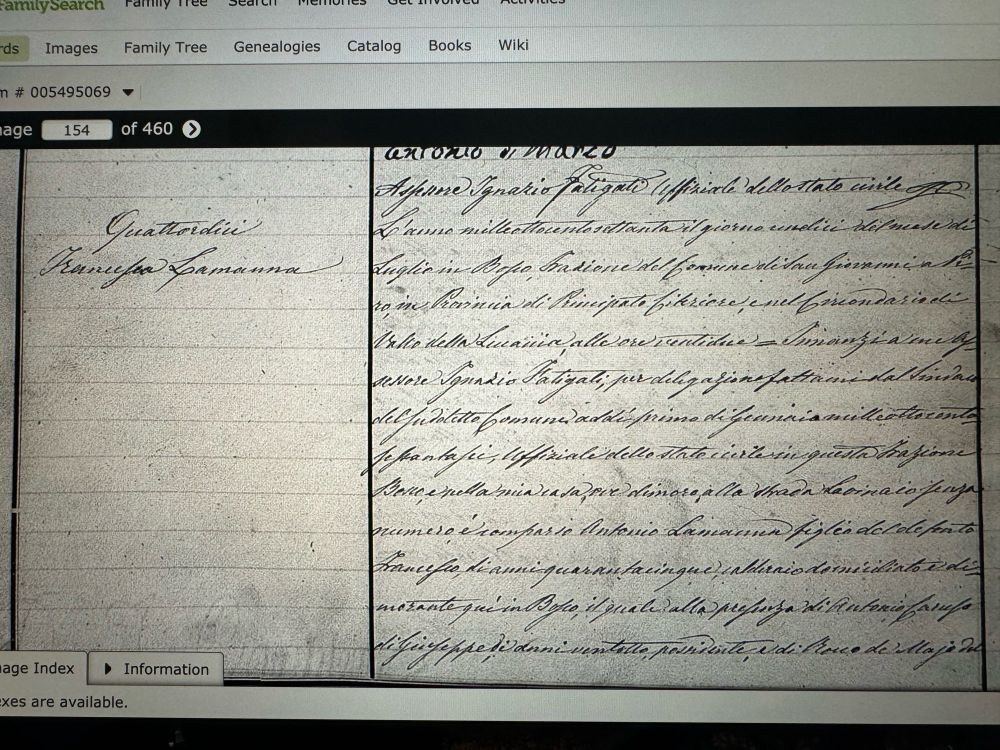 FamilySearch Family Tree Search Memories Get Involved Activities
rds Images Family Tree Genealogies Catalog Books Wiki
m # 005495069
mage 154 of 460
Antonio di Marzo
Assessore Ignazio Fatigati Uffiziale dello stato civile
Quattordici
Francesco Lamanna
L'anno milleottocentosettanta il giorno undici del mese di
Luglio in Bosco, Frazione del Comune di San Giovanni a Pi=
ro, in Provincia di Principato Citeriore, e nel Circondario di
Vallo della Lucania, alle ore ventidue = Innanzi a me As=
sessore Ignazio Fatigati, per delegazione fattami dal Sindaco
del sudetto Comune addì primo di Gennaio milleottocento
sessantasei, Uffiziale dello stato civile in questa Frazione
Bosco, e nella mia casa, ove dimoro, alla strada senza
numero è comparso Antonio Lamanna figlio del defunto
Francesco, di anni quarantacinque, domiciliato e di=
morante qui in Bosco, il quale alla presenza di Antonio Caruso
di Giuseppe di anni ventotto, possidente, e di Rocco de Majo del
mage Index Information
exes are available.